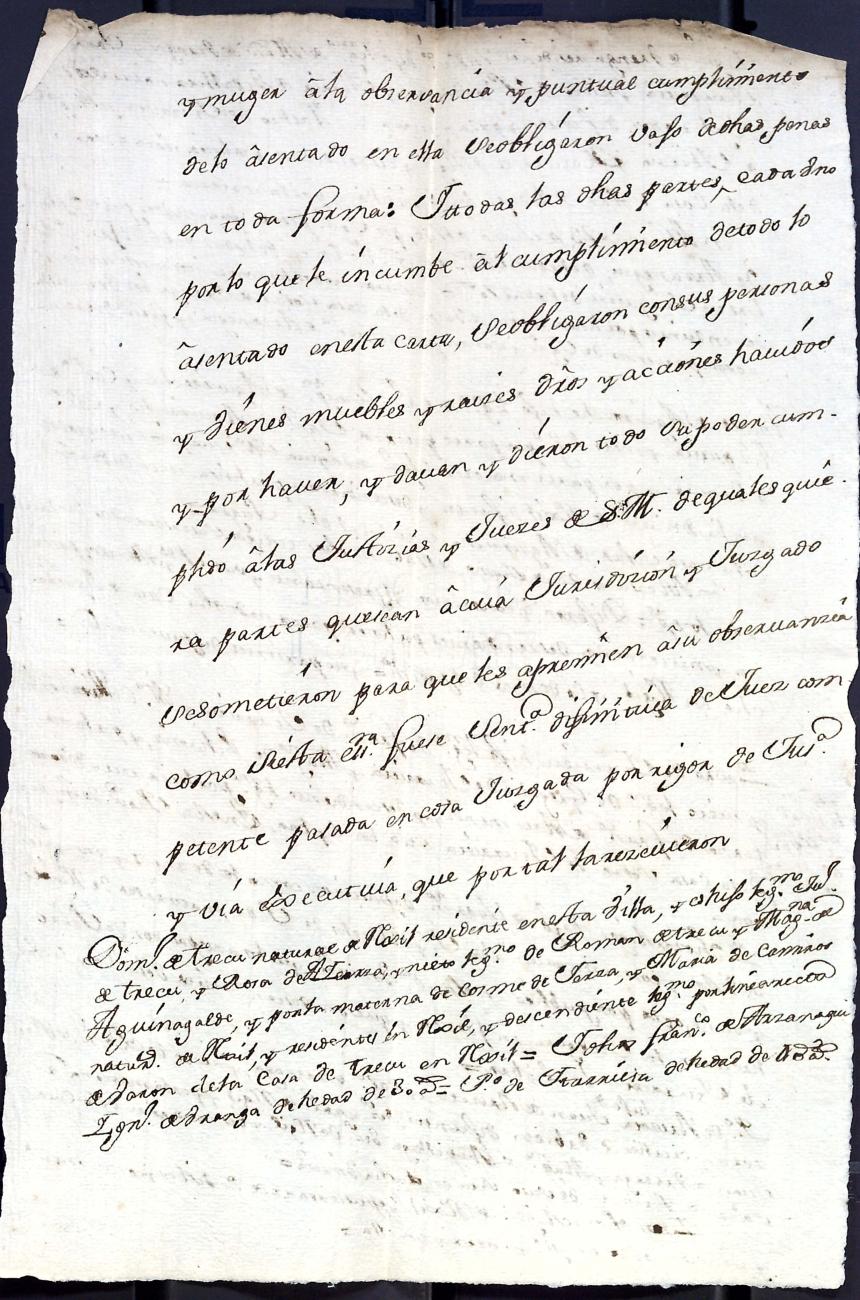 y muger âla observancia y puntual cumplimiento
delo âsentado en ella seobligaron vajo dedhas penas
en toda forma: Itodas las dhas partes, cada uno
porlo que le incumbe âl cumplimiento detodo lo
âsentado enesta carta, seobligaron consus personas
y vienes muebles y raizes dr̃os y acciónes havidos
y por haver, y davan y diéron todo supoder cum-
plido âlas Justizias y Juezes de S.M. dequales quie-
ra partes quesean âcuia Jurisdizión y Juzgado
sesometiéron para que les apremien âsu observanzia
como siésta esra. fuese Senta. difinitiva de Juez com
petente pasada en cosa Juzgada por rigor de Jusa.
y vía executiva, que por tal larezivieron
Domo. de trecu natural de Noxil residente enesta Villa, y es hijo legmo. Jul.
de trecu, y Rosa de Aterza, y nieto legmo. de Roman de trecu y Magna. de
Aguinagalde, y porla materna de Cosme de Terza, y Maria de
naturs. de Noxil, y residentes en Noxil, y descendiente legmo. por linea recta
de varon dela Casa de Trecu en Noxil = Johs. Franco. de Arzanegui
Igno. de dranga de hedad de 30 as = Po. de Iturriza de hedad de 43 as.